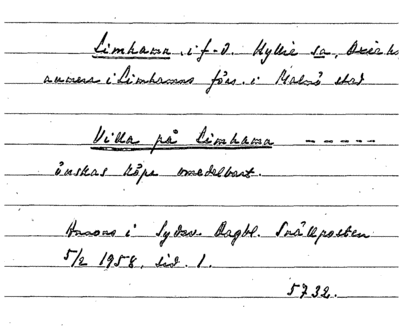 Limhamn, i f.d. Hyllie sn, Oxie h
numera i Limhamns förs. i Malmö stad
Villa på Limhamn -----
önskas köpa omedelbart.
Annons i Sydsv. Dagbl. Snällposten
5/2 1958, sid. 1.
5732.